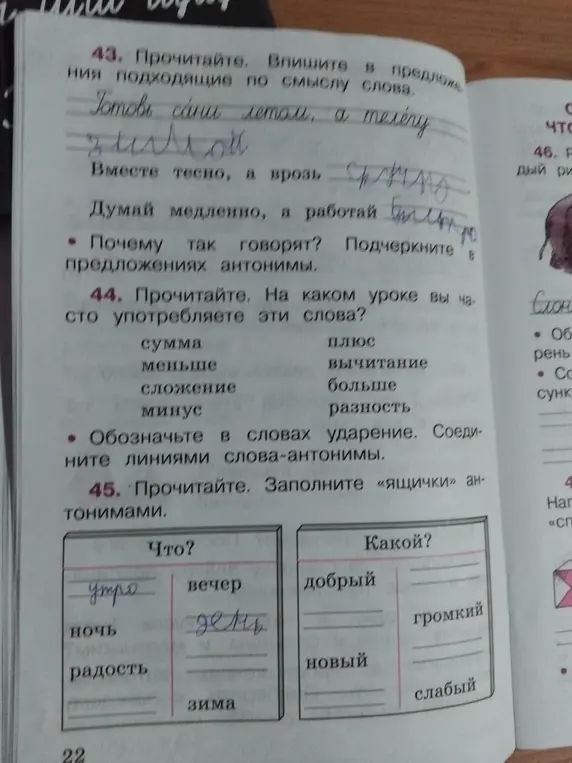 43. Прочитайте. Впишите в предложе-
ния подходящие по смыслу слова.
Готовь сани летом, а телегу
зимой
Вместе тесно, а врозь скучно
Думай медленно, а работай быстро
• Почему так говорят? Подчеркните в
предложениях антонимы.
44. Прочитайте. На каком уроке вы ча-
сто употребляете эти слова?
сумма плюс
меньше вычитание
сложение больше
минус разность
• Обозначьте в словах ударение. Соеди-
ните линиями слова-антонимы.
45. Прочитайте. Заполните «ящички» ан-
тонимами.
Что?
утро вечер
ночь день
радость
зима
Какой?
добрый
громкий
новый
слабый
22
ЧТО
46.
дый ри
• Об
рень
• Со
сунк
Наг
«сп